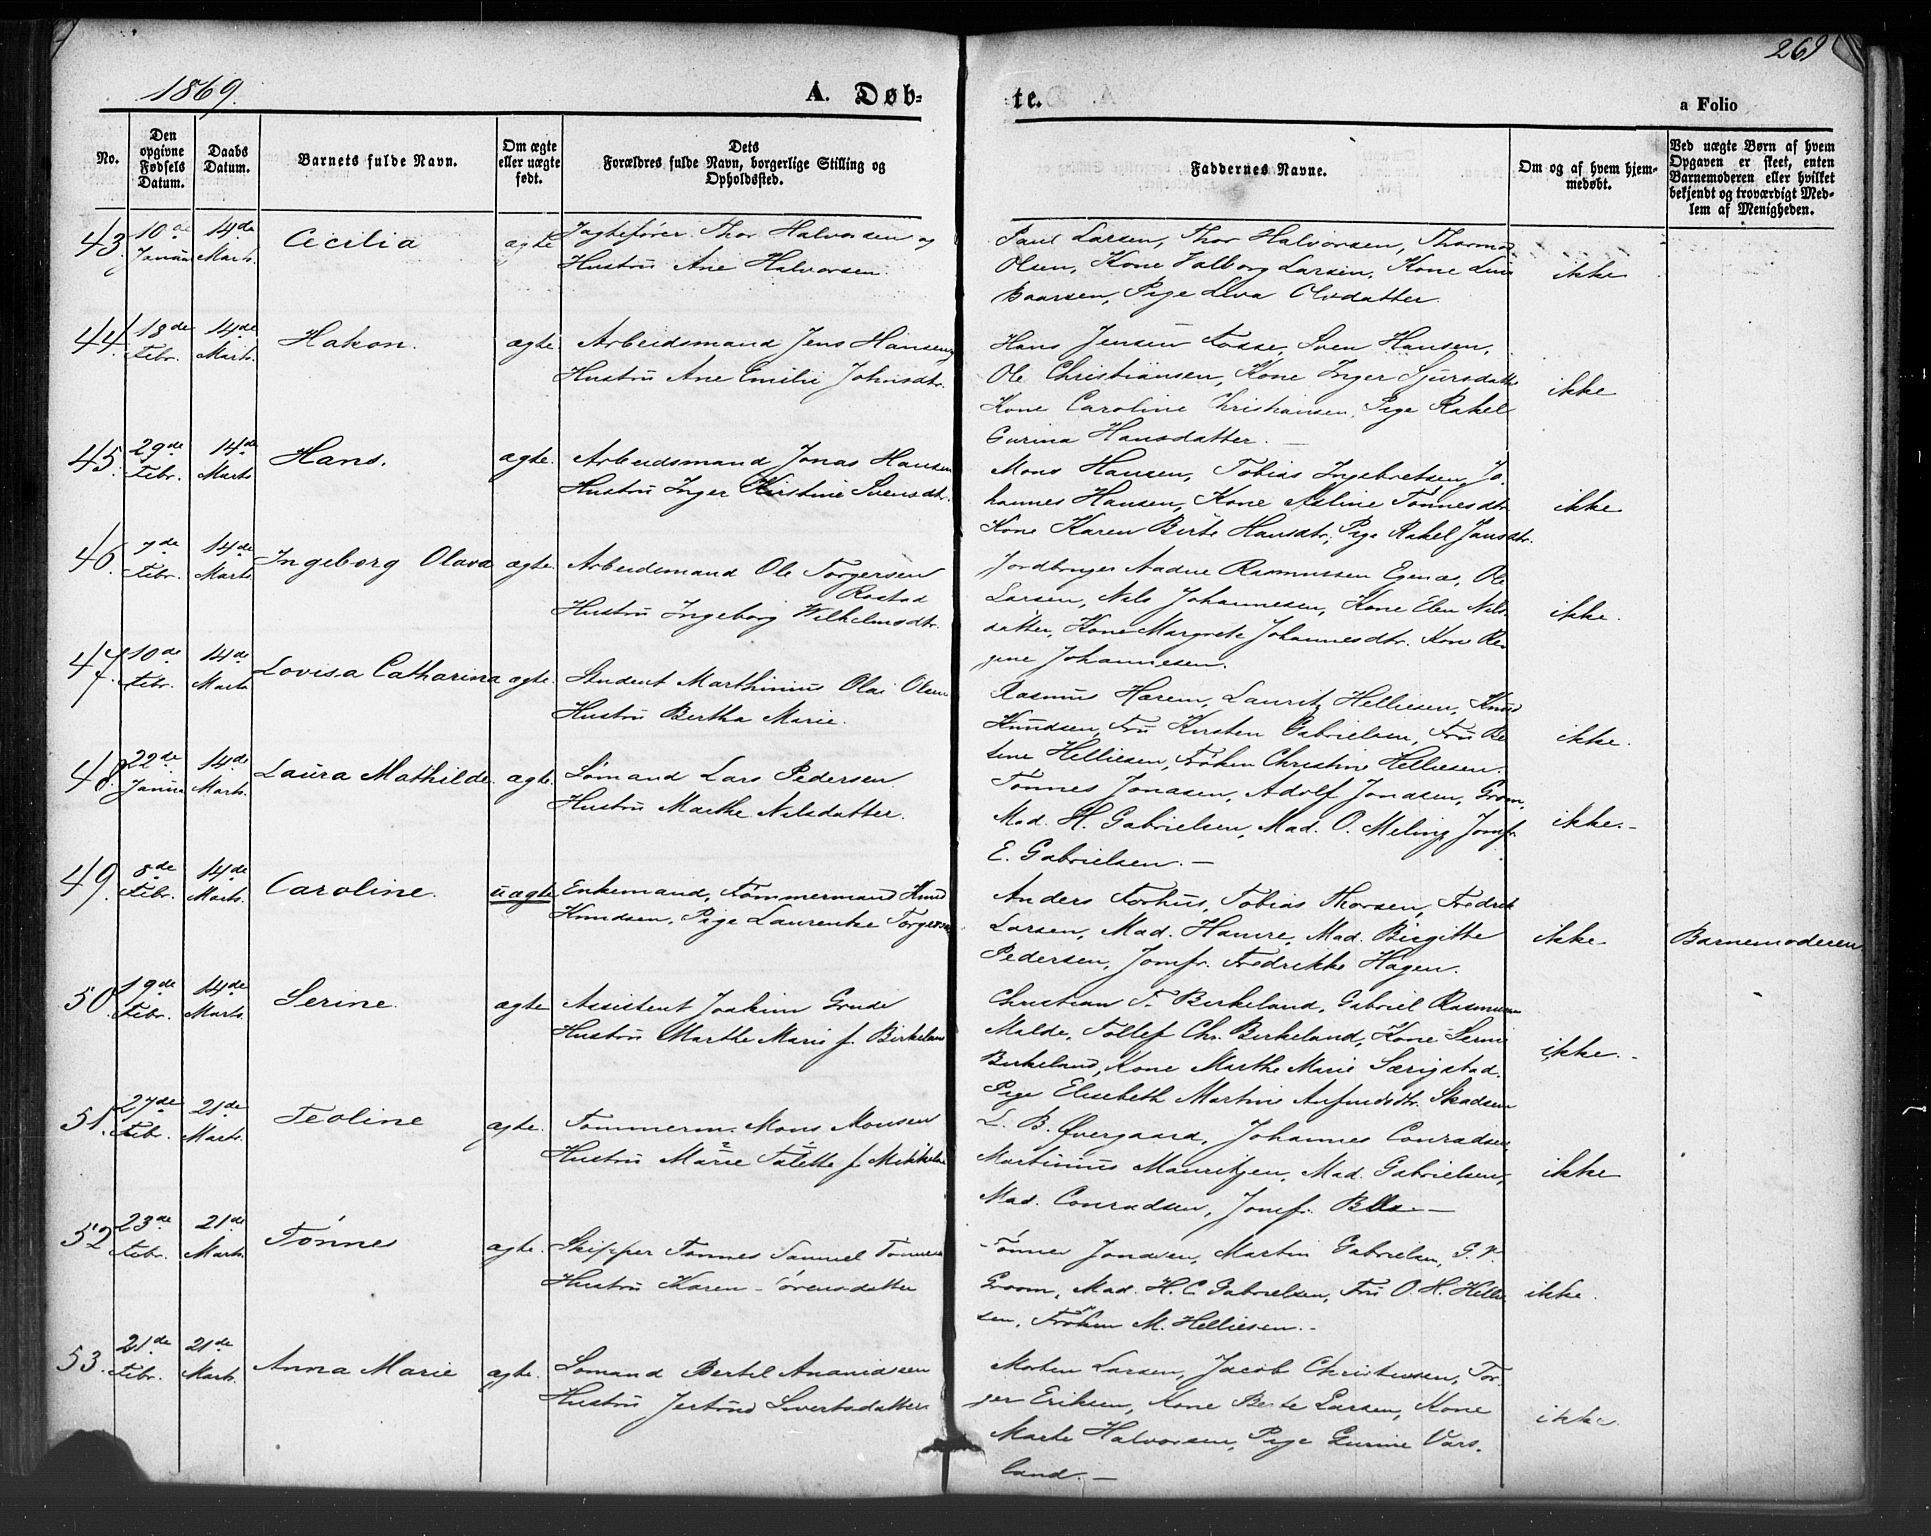 1869.
A. Døb-
te.
269
a Folio
No.
Den opgivne Fødsels Datum.
Daabs Datum.
Barnets fulde Navn.
Om ægte eller uægte født.
Dets Forældres fulde Navn, borgerlige Stilling og Opholdssted.
Faddernes Navne.
Om og af hvem hjem-
medøbt.
Ved uægte Børn af hvem
Opgaven er skeet, enten
Barnemoderen eller hvilket
bekjendt og troværdigt Med-
lem af Menigheden.
43. 10de 14de
Januar Marts.
Cecilia
ægte
Jagtefører Thor Halvorsen og
Hustru Ane Halvorsen
Paul Larsen, Thor Halvorsen, Thormod
Olsen, Kone Valborg Larsen, Kone
Baarsen, Pige Olsdatter.
ikke
44. 18de 14de
Febr. Marts.
Hakon.
ægte.
Arbeidsmand Jens Hansen
Hustru Ane Emilie Johnsdtr.
Hans Jensen Fosse, Sven Hansen,
Ole Christiansen, Kone Inger Sjursdatte
Kone Caroline Christiansen, Pige Rakel
Gurina Hansdatter. —
ikke
45. 29de 14de
Febr. Marts
Hans.
ægte.
Arbeidsmand Jonas Hansen
Hustru Inger Kirstine Svensdtr.
Mons Hansen, Tobias Ingebretsen, Jo-
hannes Hansen, Kone Asline Tønnesdtr.
Kone Karen Birte Hansdtr, Pige Rakel Jansdtr.
ikke
46. 7de 14de
Febr. Marts.
Ingeborg Olava
ægte.
Arbeidsmand Ole Torgersen
Rostad
Hustru Ingeborg Wilhelmsdtr.
Jordbruger Aadne Rasmussen Egenæs, Ole
Larsen, Nils Johannesen, Kone Elen Nils-
datter, Kone Margrete Johannesdtr. Kone Re-
gine Johannesen.
ikke.
47. 10de 14de
Febr. Marts
Lovisa Catharina
ægte.
Student Marthinius Olai Olsen
Hustru Bertha Marie.
Rasmus Harem, Lauritz Helliesen, Knud
Knudsen, Fru Kirsten Gabrielsen, Fru Be-
sine Helliesen, Frøken Christine Helliesen.
ikke.
48. 22de 14de
Januar Marts.
Laura Mathilde.
ægte.
Sømand Lars Pedersen
Hustru Marthe Nilsdatter.
Tønnes Jonasen, Adolf Jonasen, Groom,
Mad. H. Gabrielsen, Mad. O. Meling, Jomfr.
E. Gabrielsen. —
ikke. -
49. 8de 14de
Febr. Marts.
Caroline.
uægte
Enkemand, Tømmermand Knud
Knudsen, Pige Laurentse Torgersen
Anders Forhus, Tobias Thorsen, Fredrik
Larsen, Mad. Hamre, Mad. Birgitte
Pedersen, Jomfr. Fredrikke Hagen.
ikke
Barnemoderen
50. 19de 14de
Febr. Marts.
Serine.
ægte
Assistent Joakim Grude
Hustru Marthe Marie f. Birkeland
Christian T. Birkeland, Gabriel Rasmussen
Malde, Tollef Chr. Birkeland, Kone Serine
Birkeland, Kone Marthe Marie Særigstad,
Pige Elisebeth Martine Skadsem
ikke. -
51. 27de 21de
Febr. Marts.
Teoline
ægte.
Tømmerm. Mons Monsen
Hustru Marie Talette f. Mikkelsen
L. B. Øvergaard, Johannes Conradsen,
Martinius Mauritzen, Mad. Gabrielsen,
Mad. Conradsen, Jomfr. —
ikke
52 23de 21de
Febr. Marts.
Tønnes
ægte.
Skipper Tønnes Samuel Tønnesen
Hustru Karen Sørensdatter
Tønnes Jonasen, Martin Gabrielsen, G. V.
Groom, Mad. H. C. Gabrielsen, Fru O. H. Hellie-
sen, Frøken M. Helliesen. -
ikke.
53. 21de 21de
Febr. Marts.
Anna Marie
ægte.
Sømand Bertel Ananidsen
Hustru Jertrud Sivertsdatter
Morten Larsen, Jacob Christensen, Tor-
ger Eriksen, Kone Berte Larsen, Kone
Marte Halvorsen, Pige Gurine Vars-
land. —
ikke